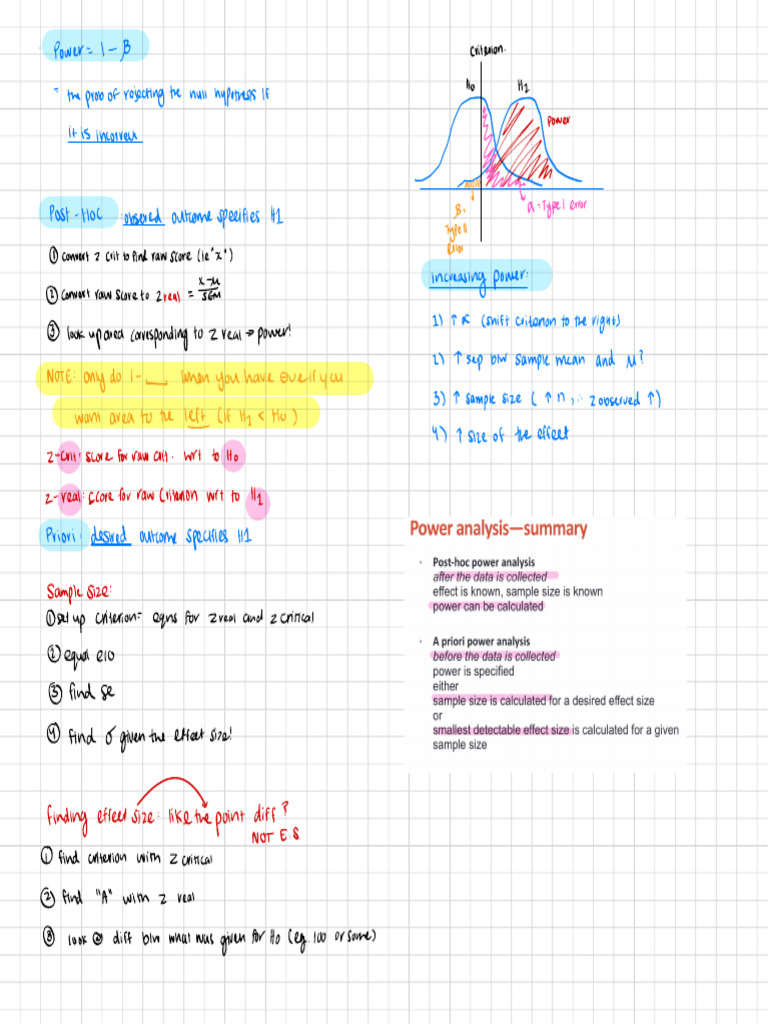 Power = 1 - β
= the prob of rejecting the null hypothesis if
it is incorrect
Post-Hoc: observed outcome specifies H1
① convert z crit to find raw score (ie "x")
② convert raw score to z real = x-μ / SEM
③ look up area corresponding to z real → power!
NOTE: only do 1-___ when you have ove if you
want area to the left (if H1 < Ho)
z-crit: score for raw crit. wrt to Ho
z-real: score for raw criterion wrt to H1
Priori: desired outcome specifies H1
Sample size:
① set up criterion= eqns for z real and z critical
② equal e/o
③ find se
④ find σ given the effect size!
finding effect size: like the point diff?
NOT E.S
① find criterion with z critical
② find "A" with z real
③ look @ diff b/w what was given for Ho (eg. 100 or some)
Criterion.
Ho H1
power
β = Type II error
α = Type I error
increasing power:
1) ↑ α (shift criterion to the right)
2) ↑ sep b/w sample mean and μ?
3) ↑ sample size (↑ n, ∴ z observed ↑)
4) ↑ size of the effect
Power analysis—summary
• Post-hoc power analysis
after the data is collected
effect is known, sample size is known
power can be calculated
• A priori power analysis
before the data is collected
power is specified
either
sample size is calculated for a desired effect size
or
smallest detectable effect size is calculated for a given
sample size